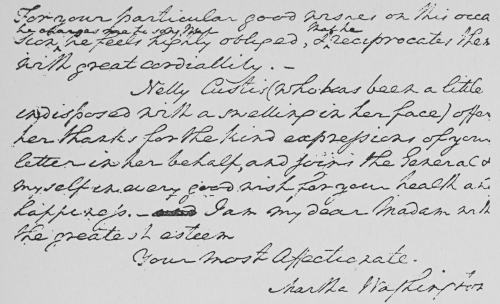 For your particular good wishes on this occa
he charges me to say, that that he
sion, he feels highly obliged, & reciprocates them
with great cordiallity. —
Nelly Custis (who has been a little
indisposed with a swelling in her face) offers
her thanks for the kind expressions of your
letter in her behalf, and joins the General &
myself in every good wish for your health and
happiness. — I am my dear Madam with
the greatest esteem
Your most Affectionate.
Martha Washington